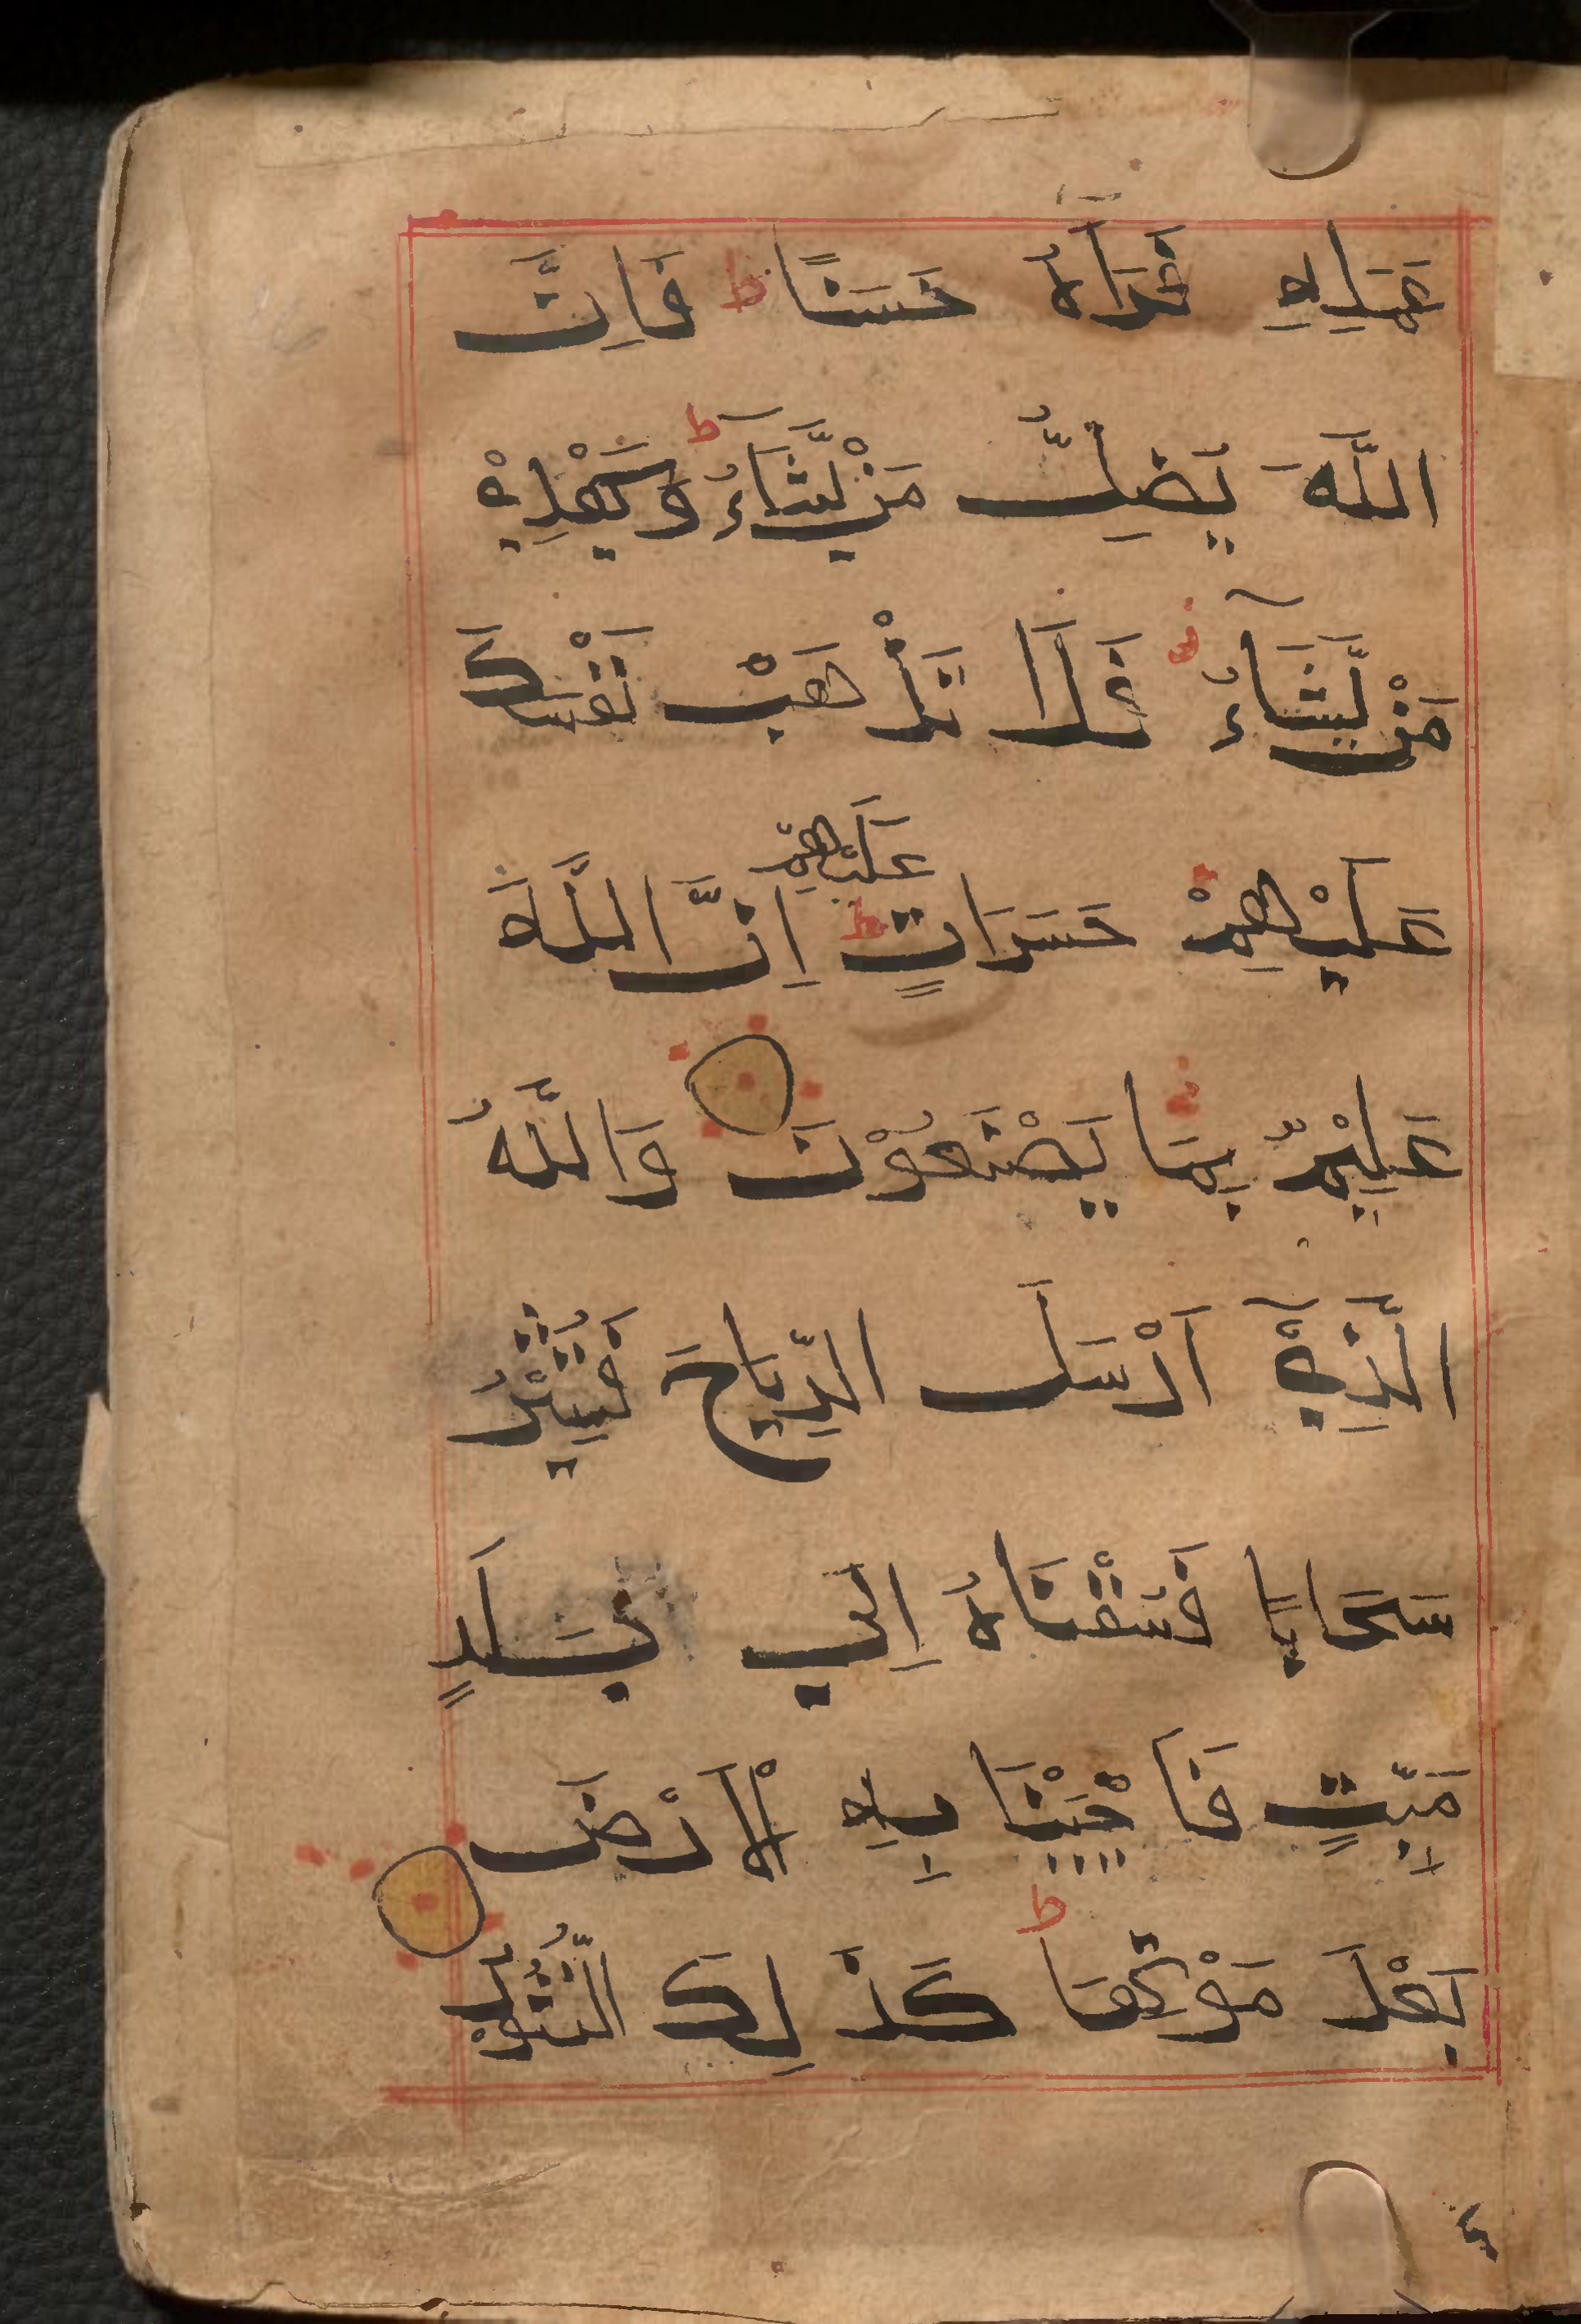 عَمَلِهِ فَرَاٰهُ حَسَنًا ط فَاِنَّ
اللَّهَ يُضِلُّ مَنْ يَّشَآءُ ط وَيَهْدِيْ
مَنْ يَّشَآءُ فَلَا تَذْهَبْ نَفْسُكَ
عَلَيْهِمْ حَسَرَاتٍ ط اِنَّ اللَّهَ
عَلَيْهِمْ
عَلِيْمٌ بِمَا يَصْنَعُوْنَ وَاللَّهُ
الَّذِيْٓ اَرْسَلَ الرِّيَاحَ فَتُثِيْرُ
سَحَابًا فَسُقْنَاهُ اِلٰي بَلَدٍ
مَيِّتٍ فَاَحْيَيْنَا بِهِ الْاَرْضَ
بَعْدَ مَوْتِهَا ط كَذٰلِكَ النُّشُوْرُ